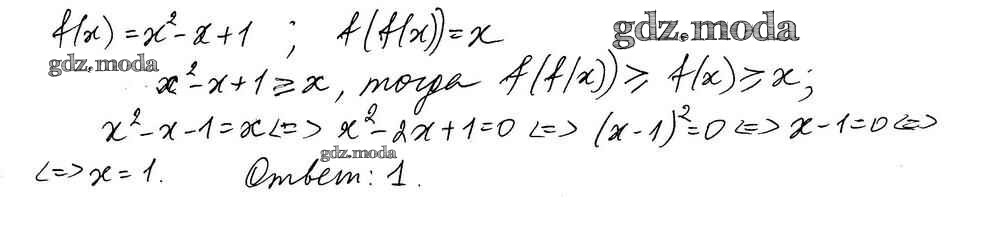 f(x) = x² - x + 1 ; f(f(x)) = x
gdz.moda
gdz.moda
x² - x + 1 ⩾ x, тогда f(f(x)) ⩾ f(x) ⩾ x;
x² - x - 1 = x <=> x² - 2x + 1 = 0 <=> (x - 1)² = 0 <=> x - 1 = 0 <=>
gdz.moda
<=> x = 1. Ответ: 1.